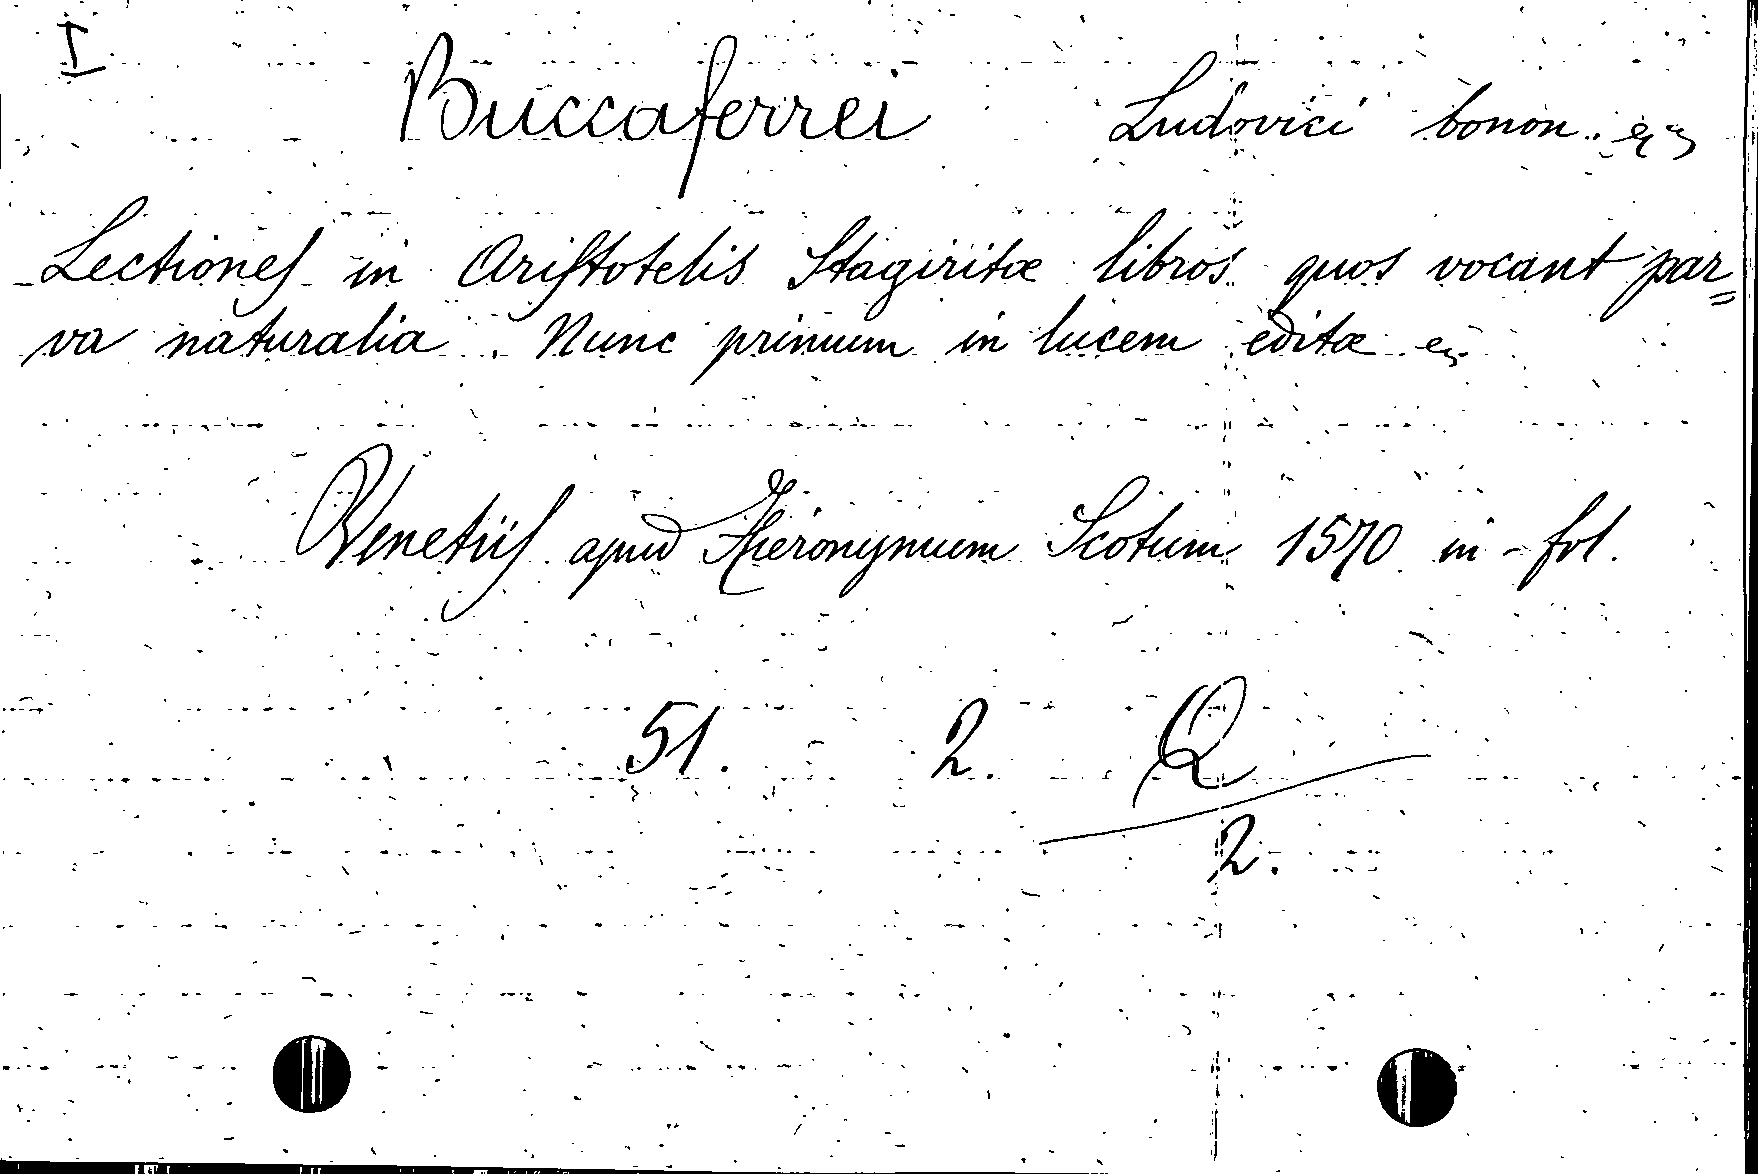 I
Buccaferrei Ludovici bonon.
Lectiones in Aristotelis Stagiritæ libros quos vocant par=
va naturalia. Nunc primum in lucem editæ
Venetiis apud Hieronymum Scotum 1570 in-fol.
51. 2. Q
2.